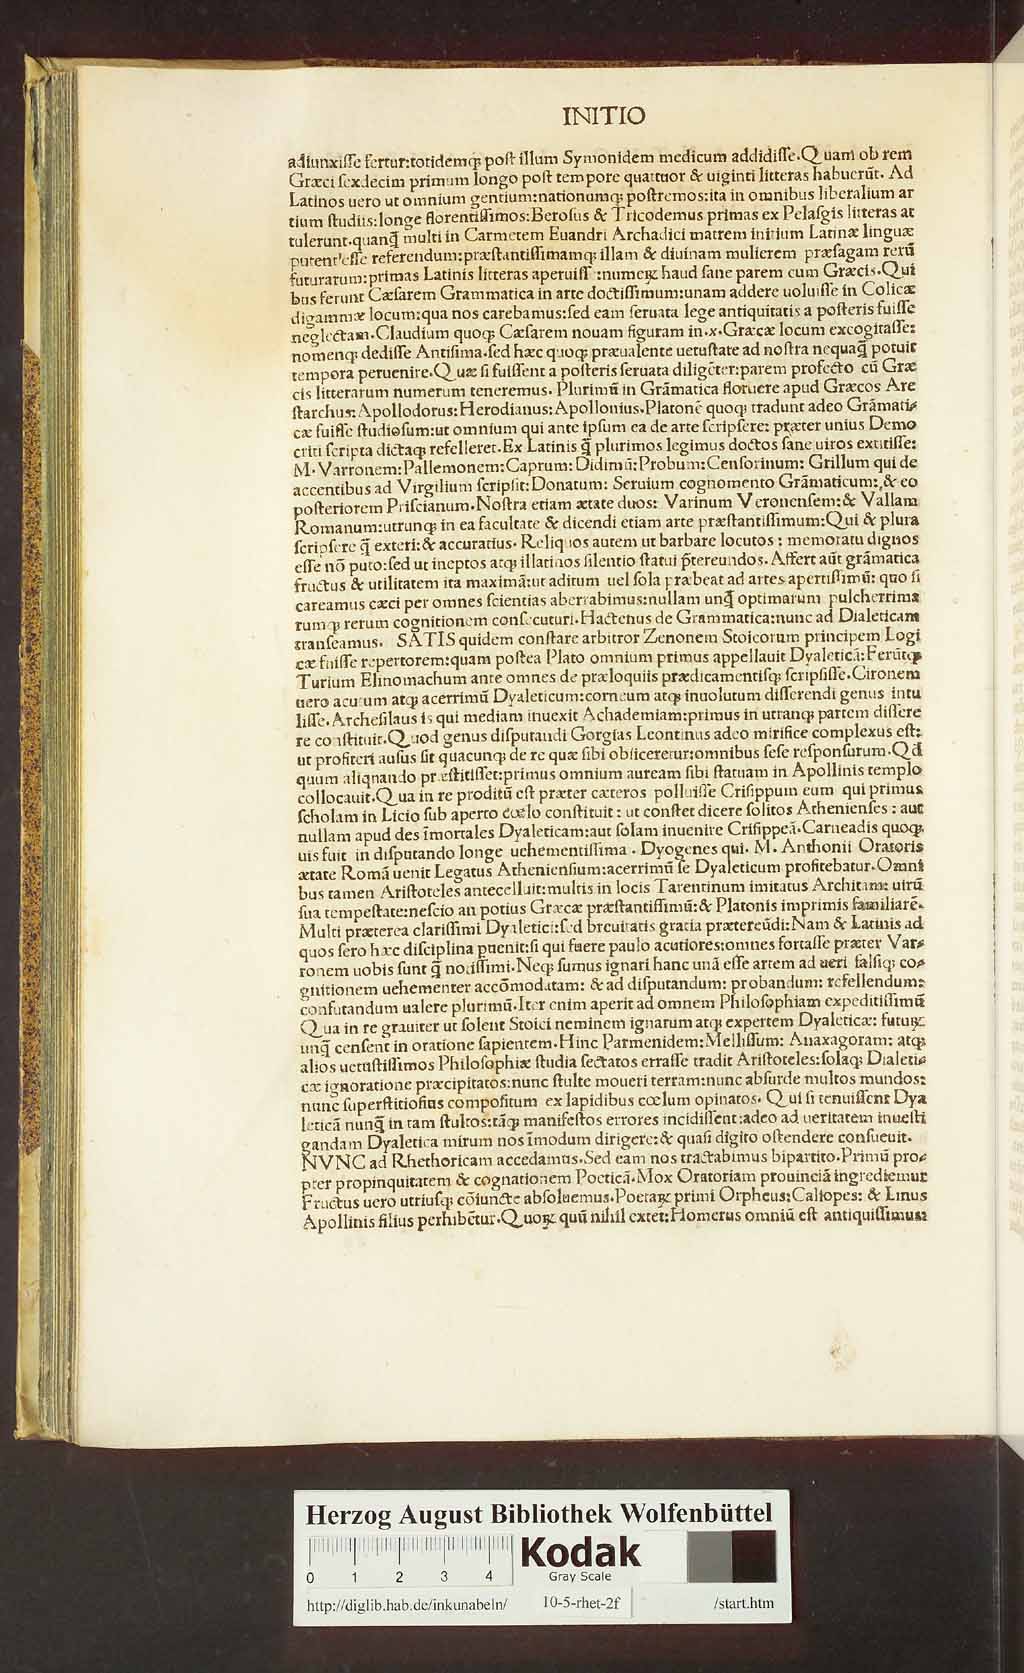 INITIO
adiunxiſſe fertur:totidemꝗ poſt illum Symonidem medicum addidiſſe.Quam ob rem
Græci ſexdecim primum longo poſt tempore quattuor & uiginti litteras habuerūt. Ad
Latinos uero ut omnium gentium:nationumꝗ poſtremos:ita in omnibus liberalium ar
tium ſtudiis:longe florentiſſimos:Beroſus & Tricodemus primas ex Pelaſgis litteras at
tulerunt.quanq̄ multi in Carmetem Euandri Archadici matrem initium Latinæ linguæ
putent eſſe referendum:præſtantiſſimamꝗ illam & diuinam mulierem præſagam rerū
futurarum:primas Latinis litteras aperuiſſ :numeꝝ haud ſane parem cum Græcis.Qui
bus ferunt Cæſarem Grammatica in arte doctiſſimum:unam addere uoluiſſe in Colicæ
digammæ locum:qua nos carebamus:ſed eam ſeruata lege antiquitatis a poſteris fuiſſe
neglectam.Claudium quoꝗ Cæſarem nouam figuram in.x.Græcæ locum excogitaſſe:
nomenꝗ dediſſe Antiſima.ſed hæc quoꝗ præualente uetuſtate ad noſtra nequaq̄ potuit
tempora peruenire.Quæ ſi fuiſſent a poſteris ſeruata diligēter:parem profecto cū Græ
cis litterarum numerum teneremus. Plurimū in Grāmatica floruere apud Græcos Are
ſtarchus:Apollodorus:Herodianus:Apollonius.Platonē quoꝗ tradunt adeo Grāmati⸗
cæ fuiſſe ſtudioſum:ut omnium qui ante ipſum ea de arte ſcripſere: præter unius Demo
criti ſcripta dictaꝗ refelleret.Ex Latinis q̄ plurimos legimus doctos ſane uiros extitiſſe:
M.Varronem:Pallemonem:Caprum:Didimū:Probum:Cenſorinum: Grillum qui de
accentibus ad Virgilium ſcripſit:Donatum: Seruium cognomento Grāmaticum:& eo
poſteriorem Priſcianum.Noſtra etiam ætate duos: Varinum Veronenſem:& Vallam
Romanum:utrunꝗ in ea facultate & dicendi etiam arte præſtantiſſimum:Qui & plura
ſcripſere q̄ exteri:& accuratius. Reliquos autem ut barbare locutos : memoratu dignos
eſſe nō puto:ſed ut ineptos atꝗ illatinos ſilentio ſtatui p̄tereundos. Affert aūt grāmatica
fructus & utilitatem ita maximā:ut aditum uel ſola præbeat ad artes apertiſſimū: quo ſi
careamus cæci per omnes ſcientias aberrabimus:nullam unq̄ optimarum pulcherrima
rumꝗ rerum cognitionem conſecuturi.Hactenus de Grammatica:nunc ad Dialeticam
tranſeamus. SATIS quidem conſtare arbitror Zenonem Stoicorum principem Logi
cæ fuiſſe repertorem:quam poſtea Plato omnium primus appellauit Dyaleticā:Ferūtꝗ
Turium Elinomachum ante omnes de præloquiis prædicamentiſꝗ ſcripſiſſe.Cironem
uero acutum atꝗ acerrimū Dyaleticum:corneum atꝗ inuolutum diſſerendi genus intu
liſſe.Archeſilaus is qui mediam inuexit Achademiam:primus in utranꝗ partem diſſere
re conſtituit.Quod genus diſputandi Gorgias Leontinus adeo mirifice complexus eſt:
ut profiteri auſus ſit quacunꝗ de re quæ ſibi obiiceretur:omnibus ſeſe reſponſurum.Qd̄
quum aliquando præſtitiſſet:primus omnium auream ſibi ſtatuam in Apollinis templo
collocauit.Qua in re proditū eſt præter cæteros polluiſſe Criſippum eum qui primus
ſcholam in Licio ſub aperto cœlo conſtituit : ut conſtet dicere ſolitos Athenienſes : aut
nullam apud des īmortales Dyaleticam:aut ſolam inuenire Criſippeā.Carneadis quoꝗ
uis fuit in diſputando longe uehementiſſima . Dyogenes qui. M. Anthonii Oratoris
ætate Romā uenit Legatus Athenienſium:acerrimū ſe Dyaleticum profitebatur.Omni
bus tamen Ariſtoteles antecelluit:multis in locis Tarentinum imitatus Architam: uirū
ſua tempeſtate:neſcio an potius Græcæ præſtantiſſimū:& Platonis imprimis familiarē.
Multi præterea clariſſimi Dyaletici:ſed breuitatis gratia prætereūdi:Nam & Latinis ad
quos ſero hæc diſciplina ꝑuenit:ſi qui fuere paulo acutiores:omnes fortaſſe præter Var⸗
ronem uobis ſunt q̄ notiſſimi.Neꝗ ſumus ignari hanc unā eſſe artem ad ueri falſiꝗ co⸗
gnitionem uehementer accōmodatam: & ad diſputandum: probandum: refellendum:
confutandum ualere plurimū.Iter enim aperit ad omnem Philoſophiam expeditiſſimū
Qua in re grauiter ut ſolent Stoici neminem ignarum atꝗ expertem Dyaleticæ: futuꝝ
unq̄ cenſent in oratione ſapientem.Hinc Parmenidem:Melliſſum: Anaxagoram: atꝗ
alios uetuſtiſſimos Philoſophiæ ſtudia ſectatos erraſſe tradit Ariſtoteles:ſolaꝗ Dialeti⸗
cæ ignoratione præcipitatos:nunc ſtulte moueri terram:nunc abſurde multos mundos:
nunc ſuperſtitioſius compoſitum ex lapidibus cœlum opinatos. Qui ſi tenuiſſent Dya
leticā nunq̄ in tam ſtultos:tāꝗ manifeſtos errores incidiſſent:adeo ad ueritatem inueſti
gandam Dyaletica mirum nos īmodum dirigere:& quaſi digito oſtendere conſueuit.
NVNC ad Rhethoricam accedamus.Sed eam nos tractabimus bipartito.Primū pro⸗
pter propinquitatem & cognationem Poeticā.Mox Oratoriam prouinciā ingrediemur
Fructus uero utriuſꝗ cōiuncte abſoluemus.Poetaꝝ primi Orpheus:Caliopes: & Linus
Apollinis filius perhibētur.Quoꝝ quū nihil extet:Homerus omniū eſt antiquiſſimus:
Herzog August Bibliothek Wolfenbüttel
0 1 2 3 4
Kodak
Gray Scale
http://diglib.hab.de/inkunabeln/ 10-5-rhet-2f /start.htm